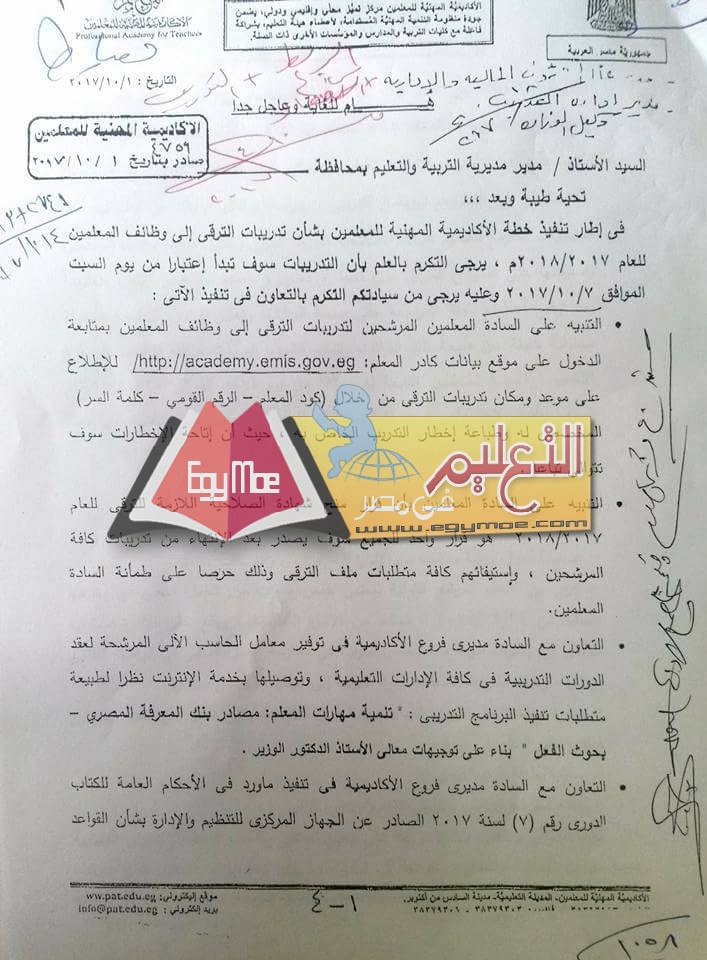 الأكاديمية المهنية للمعلمين
Professional Academy for Teachers
الأكاديمية المهنية للمعلمين مركز تميز محلي وإقليمي ودولي، يضمن
جودة منظومة التنمية المهنية المستدامة، لأعضاء هيئة التعليم، بشراكة
فاعلة مع كليات التربية والمدارس والمؤسسات الأخرى ذات الصلة
جمهورية مصر العربية
التاريخ: ٢٠١٧/١٠/١
هـــام للغاية وعاجل جدا
الأكاديمية المهنية للمعلمين
٤٧٥٩
صادر بتاريخ ١ /١٠/ ٢٠١٧
السيد الأستاذ / مدير مديرية التربية والتعليم بمحافظة
تحية طيبة وبعد ،،،
فى إطار تنفيذ خطة الأكاديمية المهنية للمعلمين بشأن تدريبات الترقى إلى وظائف المعلمين
للعام ٢٠١٨/٢٠١٧م ، يرجى التكرم بالعلم بأن التدريبات سوف تبدأ إعتبارا من يوم السبت
الموافق ٢٠١٧/١٠/٧ وعليه يرجى من سيادتكم التكرم بالتعاون فى تنفيذ الآتى :
• التنبيه على السادة المعلمين المرشحين لتدريبات الترقى إلى وظائف المعلمين بمتابعة
الدخول على موقع بيانات كادر المعلم: http://academy.emis.gov.eg/ للإطلاع
على موعد ومكان تدريبات الترقى من خلال (كود المعلم – الرقم القومي – كلمة السر)
له وطباعة إخطار التدريب الخاص به ، حيث أن إتاحة الإخطارات سوف
• التنبيه على السادة المعلمين قرار منح شهادة الصلاحية اللازمة للترقى للعام
٢٠١٨/٢٠١٧ هو قرار واحد للجميع سوف يصدر بعد الإنتهاء من تدريبات كافة
المرشحين ، وإستيفائهم كافة متطلبات ملف الترقى وذلك حرصا على طمأنة السادة
المعلمين.
• التعاون مع السادة مديرى فروع الأكاديمية فى توفير معامل الحاسب الآلى المرشحة لعقد
الدورات التدريبية فى كافة الإدارات التعليمية ، وتوصيلها بخدمة الإنترنت نظرا لطبيعة
متطلبات تنفيذ البرنامج التدريبى : " تنمية مهارات المعلم: مصادر بنك المعرفة المصري –
بحوث الفعل " بناء على توجيهات معالى الأستاذ الدكتور الوزير .
• التعاون مع السادة مديرى فروع الأكاديمية فى تنفيذ ماورد فى الأحكام العامة للكتاب
الدورى رقم (٧) لسنة ٢٠١٧ الصادر عن الجهاز المركزى للتنظيم والإدارة بشأن القواعد
EgyMoe
التعليم
في مصر
www.egymoe.com
الأكاديمية المهنية للمعلمين- المدينة التعليمية- مدينة السادس من أكتوبر.
٣٨٣٧٩٣٠١ - ٣٨٣٧٩٣٠٣
١-٤
موقع إليكتروني: ww.pat.edu.eg
بريد إليكتروني : info@pat.edu.eg
١٠٥٨